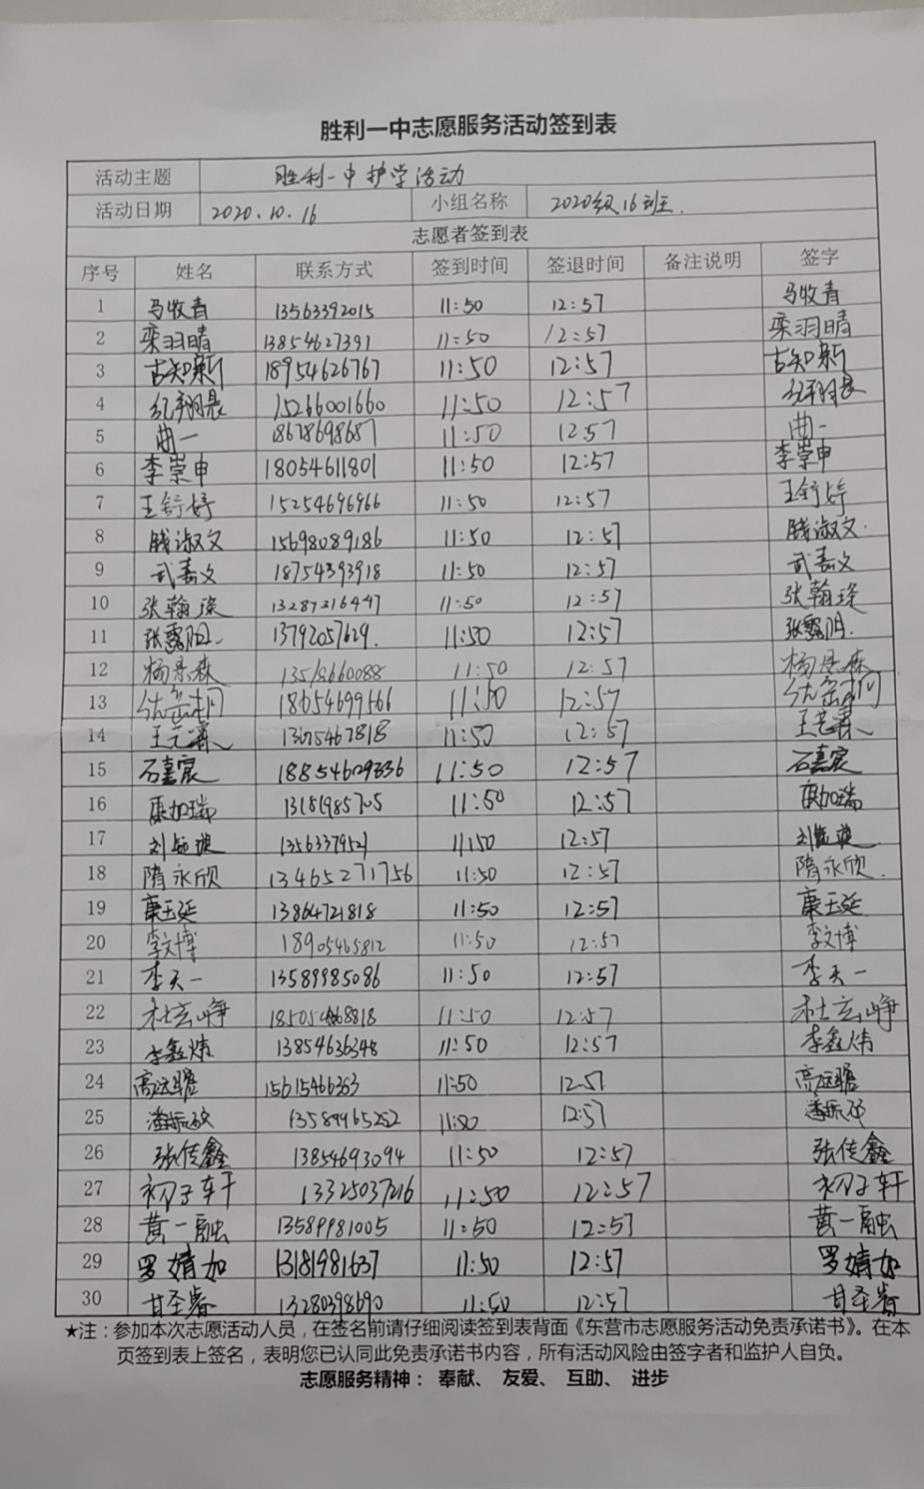 胜利一中志愿服务活动签到表
活动主题 胜利一中护学活动
活动日期 2020.10.16 小组名称 2020级16班.
志愿者签到表
序号 姓名 联系方式 签到时间 签退时间 备注说明 签字
1 马牧青 13563392015 11:50 12:57 马牧青
2 栾羽晴 13854627391 11:50 12:57 栾羽晴
3 古知新 18954626767 11:50 12:57 古知新
4 纪翔晨 15266001660 11:50 12:57 纪翔晨
5 曲一 18678698687 11:50 12:57 曲一
6 李崇申 18054611801 11:50 12:57 李崇申
7 王舒婷 15254696966 11:50 12:57 王舒婷
8 钱淑文 15698089186 11:50 12:57 钱淑文.
9 武嘉文 18754393918 11:50 12:57 武嘉文
10 张翰琛 13287216447 11:50 12:57 张翰琛
11 张露月 13792057629. 11:50 12:57 张露月.
12 杨景森 11:50 12:57 杨景森
13 18654699166 11:50 12:57
14 王艺霖 11:50 12:57 王艺霖
15 石嘉宸 11:50 12:57 石嘉宸
16 康加瑞 11:50 12:57 康加瑞
17 刘 11:50 12:57 刘
18 隋永欣 13465271756 11:50 12:57 隋永欣.
19 康玉延 13864721818 11:50 12:57 康玉延
20 李文博 18905465812 11:50 12:57 李文博
21 李天一 13589985086 11:50 12:57 李天一
22 杜玄峥 11:50 12:57 杜玄峥
23 李鑫炜 13854636348 11:50 12:57 李鑫炜
24 高远瞻 15615466363 11:50 12:57 高远瞻
25 潘振 13589965252 11:50 12:57 潘振
26 张传鑫 13854693094 11:50 12:57 张传鑫
27 初子轩 13325037216 11:50 12:57 初子轩
28 黄一融 13589981005 11:50 12:57 黄一融
29 罗婧如 13181981637 11:50 12:57 罗婧如
30 甘圣睿 13280398690 11:50 12:57 甘圣睿
★注：参加本次志愿活动人员，在签名前请仔细阅读签到表背面《东营市志愿服务活动免责承诺书》。在本
页签到表上签名，表明您已认同此免责承诺书内容，所有活动风险由签字者和监护人自负。
志愿服务精神： 奉献、 友爱、 互助、 进步